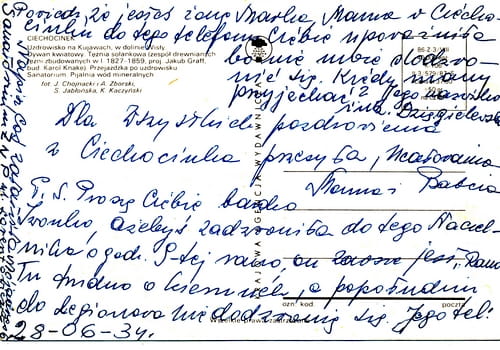 Powiedz, że jesteś żoną Marka, Mama w Ciecho-
cinku do tego telefonu Ciebie upoważniła
bo nie może dodzwo-
nić się. Kiedy mamy
przyjechać?
Dzięgielewska
CIECHOCINEK
Uzdrowisko na Kujawach, w dolinie Wisły
Dywan kwiatowy. Tężnia solankowa (zespół drewnianych
tężni zbudowanych w l. 1827-1859, proj. Jakub Graff,
bud. Karol Knake). Przejażdżka po uzdrowisku
Sanatorium. Pijalnia wód mineralnych
fot. J. Chojnacki, A. Zborski,
S. Jabłońska, K. Kaczyński
KRAJOWA AGENCJA WYDAWNICZA
Dla Wszystkich pozdrowienia
z Ciechocinka przesyła,
Mama i Babcia
P.S. Proszę Ciebie bardzo
Iwonko, ażebyś zadzwoniła do tego Naczel-
nika o godz. 8-tej rano, on zawsze jest,
Tu trudno o kierunek, a popołudniu
do Legionowa nie dodzwonię się. Jego tel:
28-06-34.
ozn. kod.
poczta
Wszelkie prawa zastrzeżone